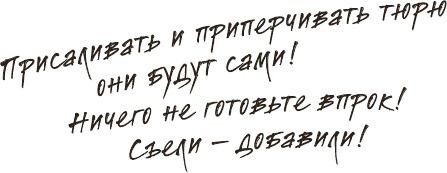 Присаливать и приперчивать тюрю
они будут сами!
Ничего не готовьте впрок!
Съели – добавили!